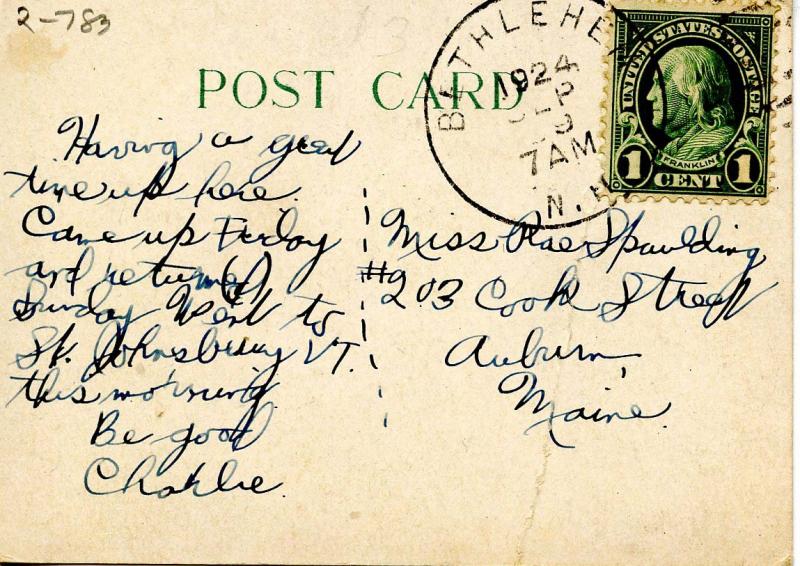 2-783
POST CARD
BETHLEHEM
1924
SEP
9
7 AM
N.H.
UNITED STATES POSTAGE
FRANKLIN
1 CENT 1
Having a great
time up here.
Came up Friday
and return(ed)
Sunday Went to
St. Johnsbury VT.
this morning
Be good
Charlie.
Miss Rae Spaulding
#203 Cook Street
Auburn,
Maine.